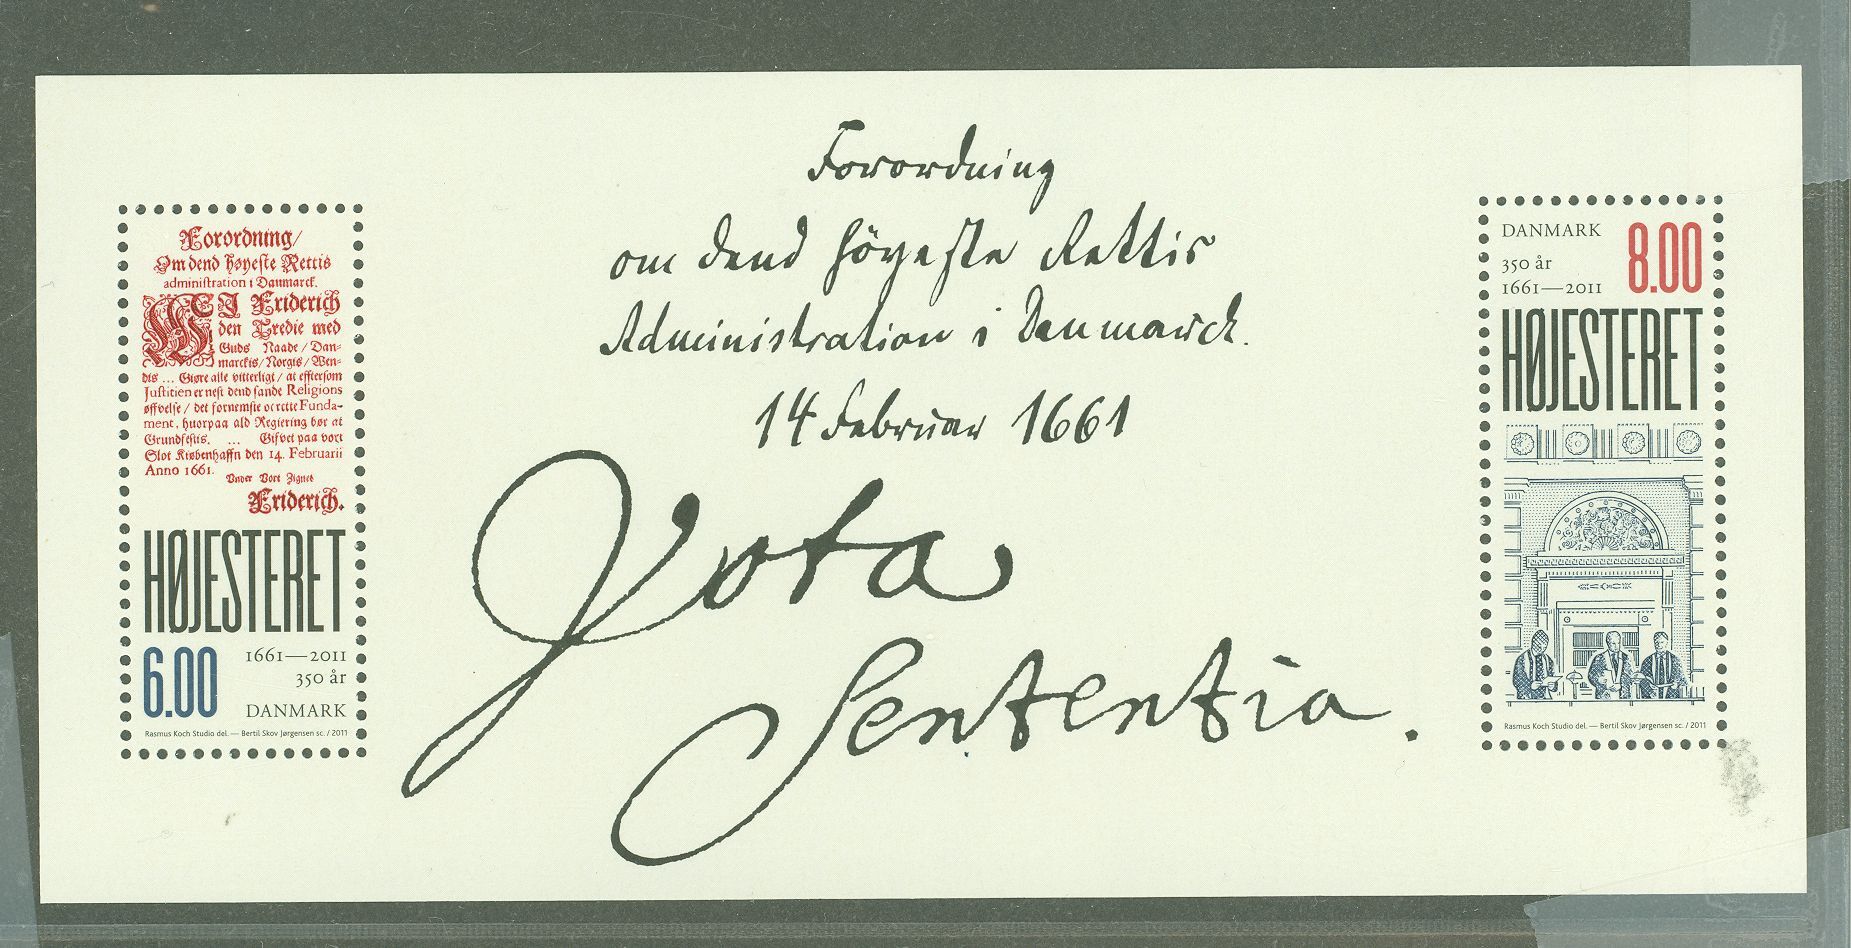 Forordning
om dend höyeste Rettis
Administration i Danmarck.
14 Februar 1661
Vota
Sententia.
Forordning/
Om dend høyeste Rettis
administration i Danmarck.
WEJ Friderich
den Tredie med
Guds Naade / Dan-
marckis / Norgis / Wen-
dis ... Giøre alle vitterligt / at efftersom
Justitien er nest dend sande Religions
øffvelse / det fornemste oc rette Funda-
ment, huorpaa ald Regiering bør at
Grundfestis. ... Gifvet paa vort
Slot Kiøbenhaffn den 14. Februarii
Anno 1661.
Under Vort Zignet
Friderich.
HØJESTERET
6.00
1661—2011
350 år
DANMARK
Rasmus Koch Studio del. — Bertil Skov Jørgensen sc. / 2011
DANMARK
350 år
1661—2011
8.00
HØJESTERET
Rasmus Koch Studio del. — Bertil Skov Jørgensen sc. / 2011